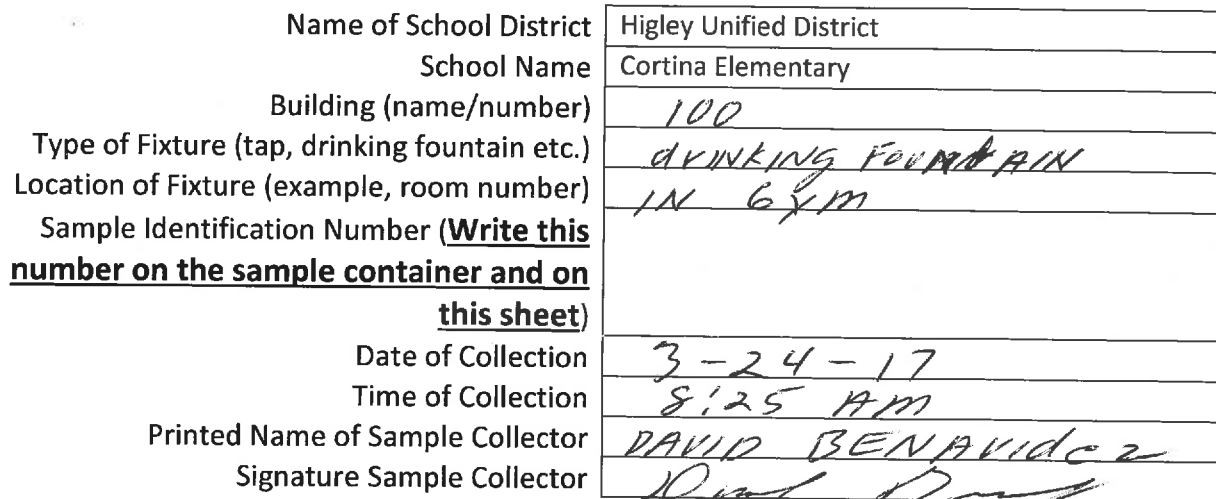 Name of School District Higley Unified District
School Name Cortina Elementary
Building (name/number) 100
Type of Fixture (tap, drinking fountain etc.) drINKING FOUNTAIN
Location of Fixture (example, room number) IN GYM
Sample Identification Number (Write this
number on the sample container and on
this sheet)
Date of Collection 3-24-17
Time of Collection 8:25 AM
Printed Name of Sample Collector DAVID BENAVIdez
Signature Sample Collector